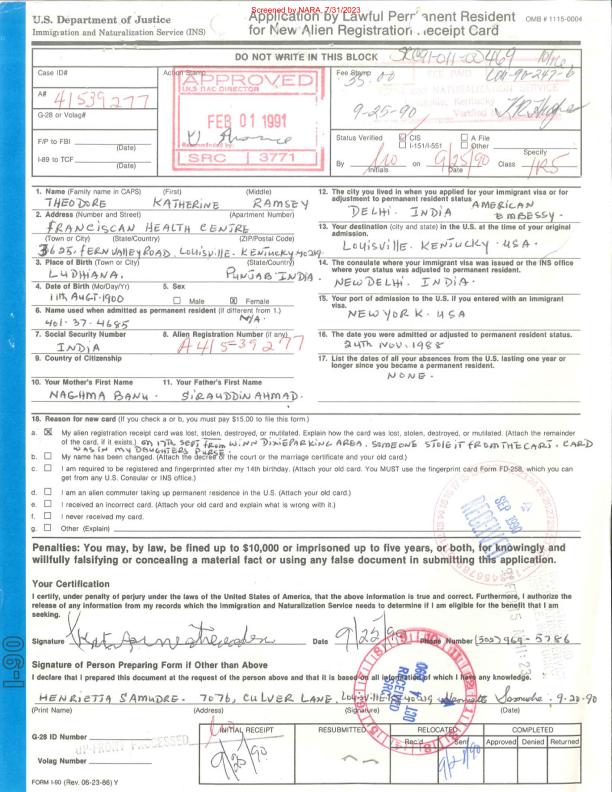 Screened by NARA, 7/31/2023
U.S. Department of Justice
Immigration and Naturalization Service (INS)
Application by Lawful Permanent Resident
for New Alien Registration Receipt Card
OMB # 1115-0004
DO NOT WRITE IN THIS BLOCK
Case ID#
A# 41539277
G-28 or Volag#
F/P to FBI
(Date)
I-89 to TCF
(Date)
Action Stamp
APPROVED
INS DAC DIRECTOR
FEB 01 1991
Recommended by:
SRC 3771
Fee Stamp
35.00
FEE PAID
9-25-90
Status Verified
CIS
I-151/I-551
A File
Other
Specify
By
Initials
on 9/25/90
Date
Class IR5
1. Name (Family name in CAPS) (First) (Middle)
THEODORE KATHERINE RAMSEY
2. Address (Number and Street) (Apartment Number)
FRANCISCAN HEALTH CENTRE
(Town or City) (State/Country) (ZIP/Postal Code)
3625. FERN VALLEY ROAD, LOUISVILLE. KENTUCKY 40219.
3. Place of Birth (Town or City) (State/Country)
LUDHIANA. PUNJAB. INDIA.
4. Date of Birth (Mo/Day/Yr) 5. Sex
11th AUGT. 1900
Male
Female
6. Name used when admitted as permanent resident (if different from 1.)
N/A.
401-37-4685
7. Social Security Number 8. Alien Registration Number (if any)
INDIA A415-39277
9. Country of Citizenship
10. Your Mother's First Name 11. Your Father's First Name
NAGHMA BANU. SIRAUDDIN AHMAD.
12. The city you lived in when you applied for your immigrant visa or for
adjustment to permanent resident status
DELHI. INDIA AMERICAN EMBESSY.
13. Your destination (city and state) in the U.S. at the time of your original
admission.
LOUISVILLE. KENTUCKY. USA.
14. The consulate where your immigrant visa was issued or the INS office
where your status was adjusted to permanent resident.
NEW DELHI. INDIA.
15. Your port of admission to the U.S. if you entered with an immigrant
visa.
NEW YORK. USA
16. The date you were admitted or adjusted to permanent resident status.
24th NOV. 1988
17. List the dates of all your absences from the U.S. lasting one year or
longer since you became a permanent resident.
NONE.
18. Reason for new card (If you check a or b, you must pay $15.00 to file this form.)
a. My alien registration receipt card was lost, stolen, destroyed, or mutilated. Explain how the card was lost, stolen, destroyed, or mutilated. (Attach the remainder
of the card, if it exists.) ON 17th SEPT FROM WINN DIXIE PARKING AREA. SOMEONE STOLE IT FROM THE CART. CARD
WAS IN MY DAUGHTERS PURSE.
b. My name has been changed. (Attach the decree of the court or the marriage certificate and your old card.)
c. I am required to be registered and fingerprinted after my 14th birthday. (Attach your old card. You MUST use the fingerprint card Form FD-258, which you can
get from any U.S. Consular or INS office.)
d. I am an alien commuter taking up permanent residence in the U.S. (Attach your old card.)
e. I received an incorrect card. (Attach your old card and explain what is wrong with it.)
f. I never received my card.
g. Other (Explain)
RECEIVED
SEP 1990
Penalties: You may, by law, be fined up to $10,000 or imprisoned up to five years, or both, for knowingly and
willfully falsifying or concealing a material fact or using any false document in submitting this application.
Your Certification
I certify, under penalty of perjury under the laws of the United States of America, that the above information is true and correct. Furthermore, I authorize the
release of any information from my records which the Immigration and Naturalization Service needs to determine if I am eligible for the benefit that I am
seeking.
Signature Date 9/22/90 Phone Number (502) 969-5786
Signature of Person Preparing Form if Other than Above
I declare that I prepared this document at the request of the person above and that it is based on all information of which I have any knowledge.
HENRIETTA SAMUDRE. 7076, CULVER LANE, LOUISVILLE 9-20-90
(Print Name) (Address) (Signature) (Date)
RECEIVED
OCT
G-28 ID Number
UP-FRONT PROCESSED
Volag Number
INITIAL RECEIPT
9/25/90
RESUBMITTED
RELOCATED
Rec'd
Sent
COMPLETED
Approved Denied Returned
FORM I-90 (Rev. 06-23-86) Y
I-90